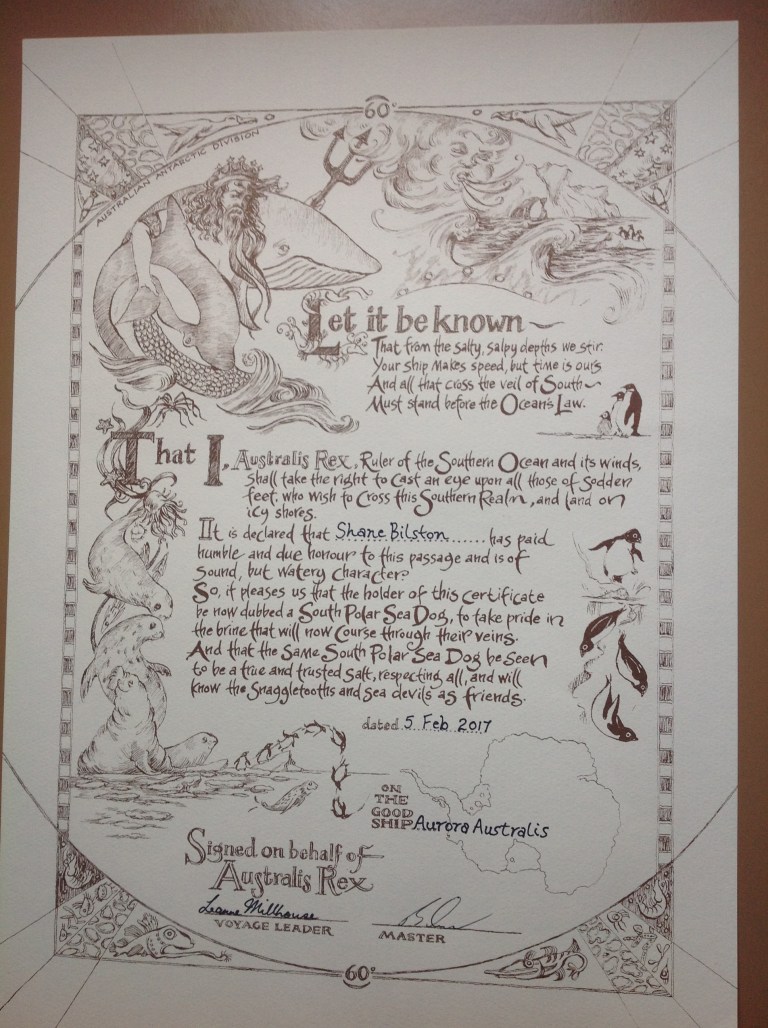 60°
AUSTRALIAN ANTARCTIC DIVISION
Let it be known ~
That from the salty, salpy depths we stir.
Your ship makes speed, but time is ours
And all that cross the veil of South ~
Must stand before the Ocean's Law.
That I, Australis Rex, Ruler of the Southern Ocean and its winds,
Shall take the right to cast an eye upon all those of sodden
feet, who wish to cross this Southern Realm, and land on
icy shores.
It is declared that Shane Bilston...... has paid
humble and due honour to this passage and is of
sound, but watery character?
So, it pleases us that the holder of this certificate
be now dubbed a South Polar Sea Dog, to take pride in
the brine that will now course through their veins.
And that the same South Polar Sea Dog be seen
to be a true and trusted salt, respecting, all, and will
know the snaggletooths and sea devils as friends.
dated 5 Feb 2017
ON
THE
GOOD
SHIP Aurora Australis
Signed on behalf of
Australis Rex
Leanne Millhouse
VOYAGE LEADER
MASTER
60°